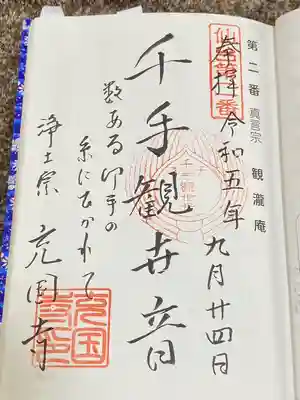 第二番 真言宗 観瀧庵
奉拝 令和五年 九月廿四日
千手観世音
数ある御手の
糸にひかれて
浄土宗 充国寺